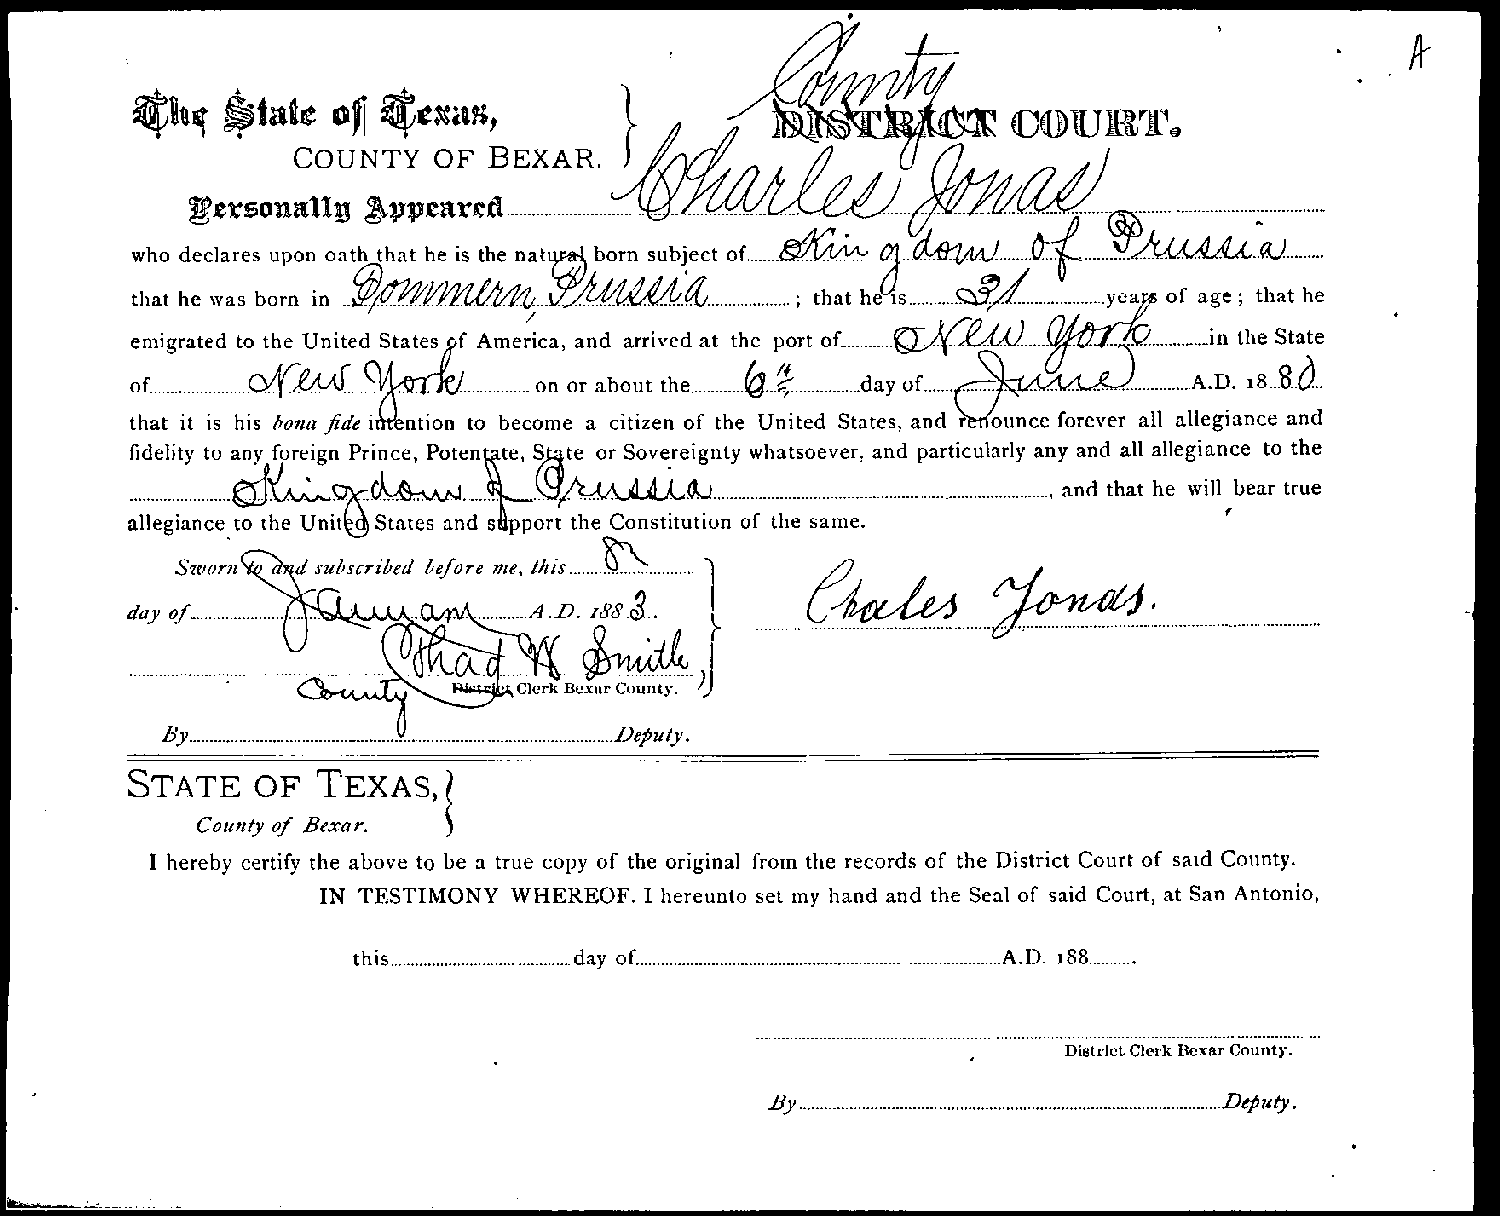 A
County
The State of Texas,
DISTRICT COURT.
COUNTY OF BEXAR.
Personally Appeared Charles Jonas
who declares upon oath that he is the natural born subject of Kingdom of Prussia
that he was born in Pommern, Prussia ; that he is 31 years of age; that he
emigrated to the United States of America, and arrived at the port of New York in the State
of New York on or about the 6th day of June A.D. 1880
that it is his bona fide intention to become a citizen of the United States, and renounce forever all allegiance and
fidelity to any foreign Prince, Potentate, State or Sovereignty whatsoever, and particularly any and all allegiance to the
Kingdom of Prussia, and that he will bear true
allegiance to the United States and support the Constitution of the same.
Sworn to and subscribed before me, this 8
day of January A.D. 1883.
Charles Jonas.
Thad W Smith
County District Clerk Bexar County.
By Deputy.
STATE OF TEXAS,
County of Bexar.
I hereby certify the above to be a true copy of the original from the records of the District Court of said County.
IN TESTIMONY WHEREOF. I hereunto set my hand and the Seal of said Court, at San Antonio,
this day of A.D. 188 .
District Clerk Bexar County.
By Deputy.